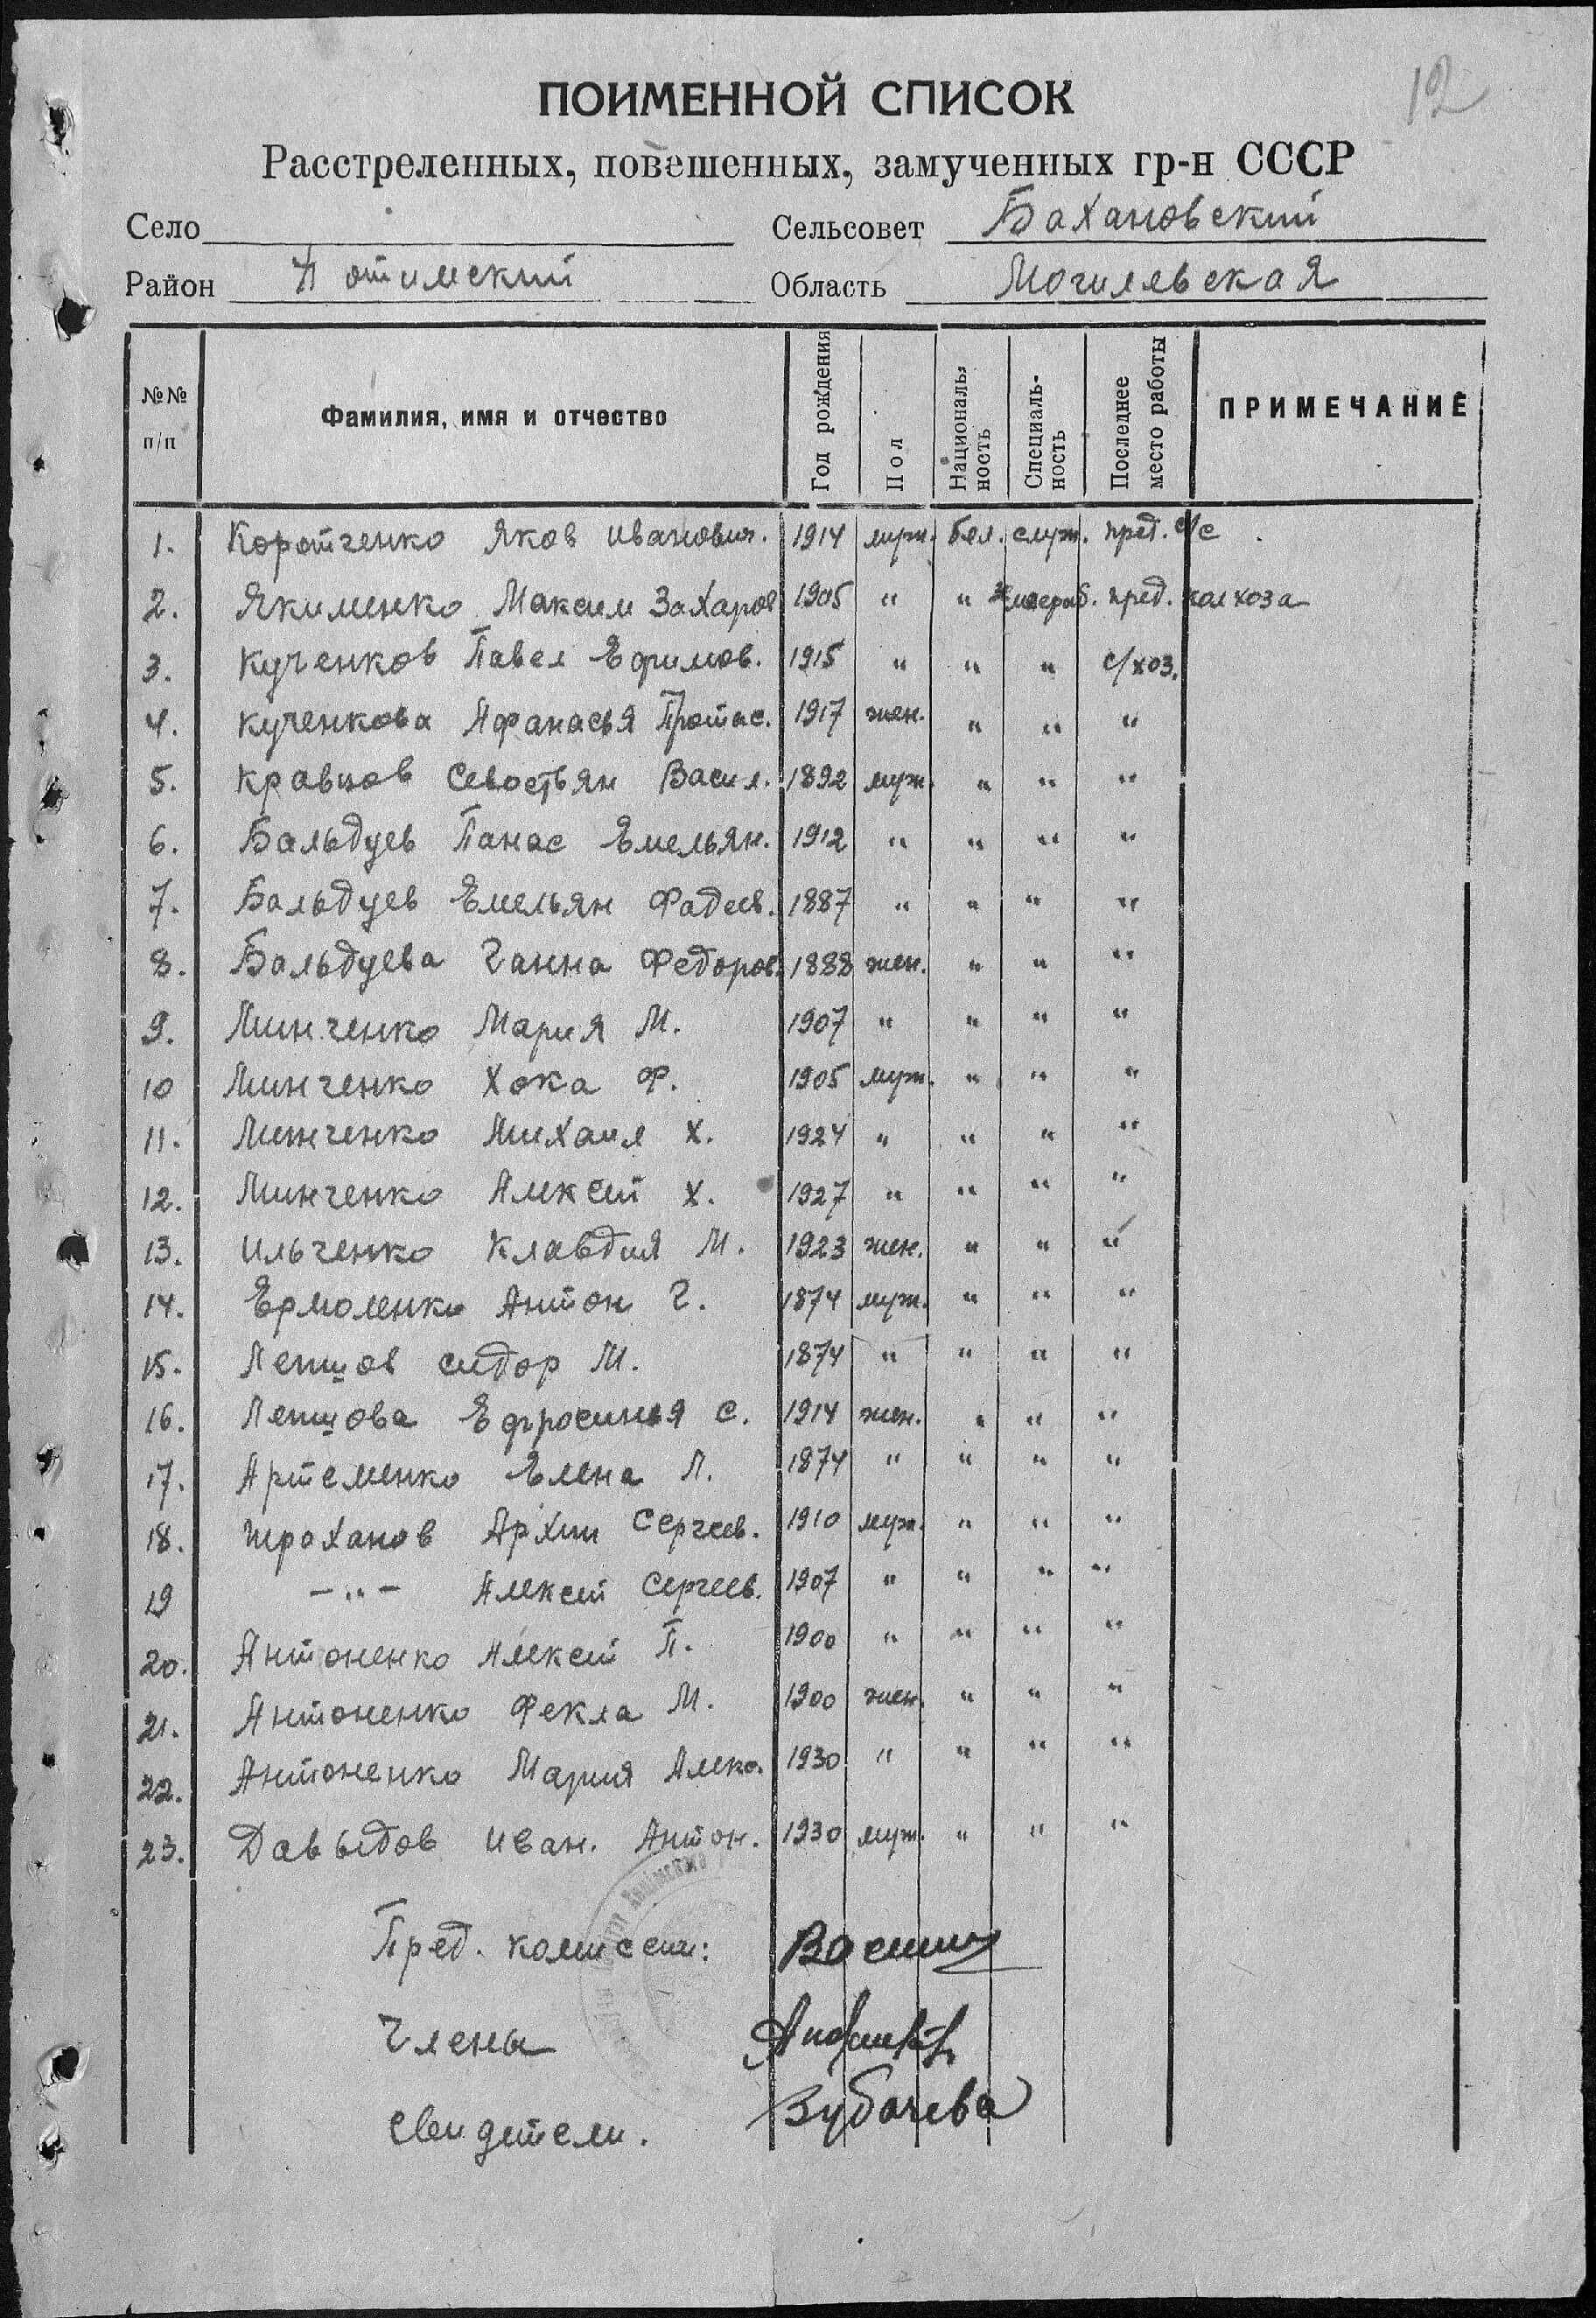 12
ПОИМЕННОЙ СПИСОК
Расстреленных, повешенных, замученных гр-н СССР
Село Сельсовет Бахановский
Район Хотимский Область Могилевская
№№ п/п Фамилия, имя и отчество Год рождения Пол Националь- ность Специаль- ность Последнее место работы ПРИМЕЧАНИЕ
1. Коротченко Яков Иванович. 1914 муж. бел. служ. пред. с/с
2. Якименко Максим Захаров 1905 " " пред. колхоза
3. Кученков Павел Ефимов. 1915 " " " с/хоз.
4. Кученкова Афанасья Протас. 1917 жен. " " "
5. Кравцов Севостьян Васил. 1892 муж. " " "
6. Бальдуев Панас Емельян. 1912 " " " "
7. Бальдуев Емельян Фадеев. 1887 " " " "
8. Бальдуева Ганна Федоров. 1888 жен. " " "
9. Минченко Мария М. 1907 " " " "
10 Минченко Хока Ф. 1905 муж. " " "
11. Минченко Михаил Х. 1924 " " " "
12. Минченко Алексей Х. 1927 " " " "
13. Ильченко Клавдия М. 1923 жен. " " "
14. Ермоленко Антон Г. 1874 муж. " " "
15. Лепшов Сидор М. 1874 " " " "
16. Лепшова Ефросинья С. 1914 жен. " " "
17. Артеменко Елена Л. 1874 " " " "
18. Шроханов Архип Сергеев. 1910 муж. " " "
19 -"- Алексей Сергеев. 1907 " " " "
20. Антоненко Алексей П. 1900 " " " "
21. Антоненко Фекла М. 1900 жен. " " "
22. Антоненко Мария Алекс. 1930 " " " "
23. Давыдов Иван. Антон. 1930 муж. " " "
Пред. комиссии:
Члены
Свидетели. Зубачева